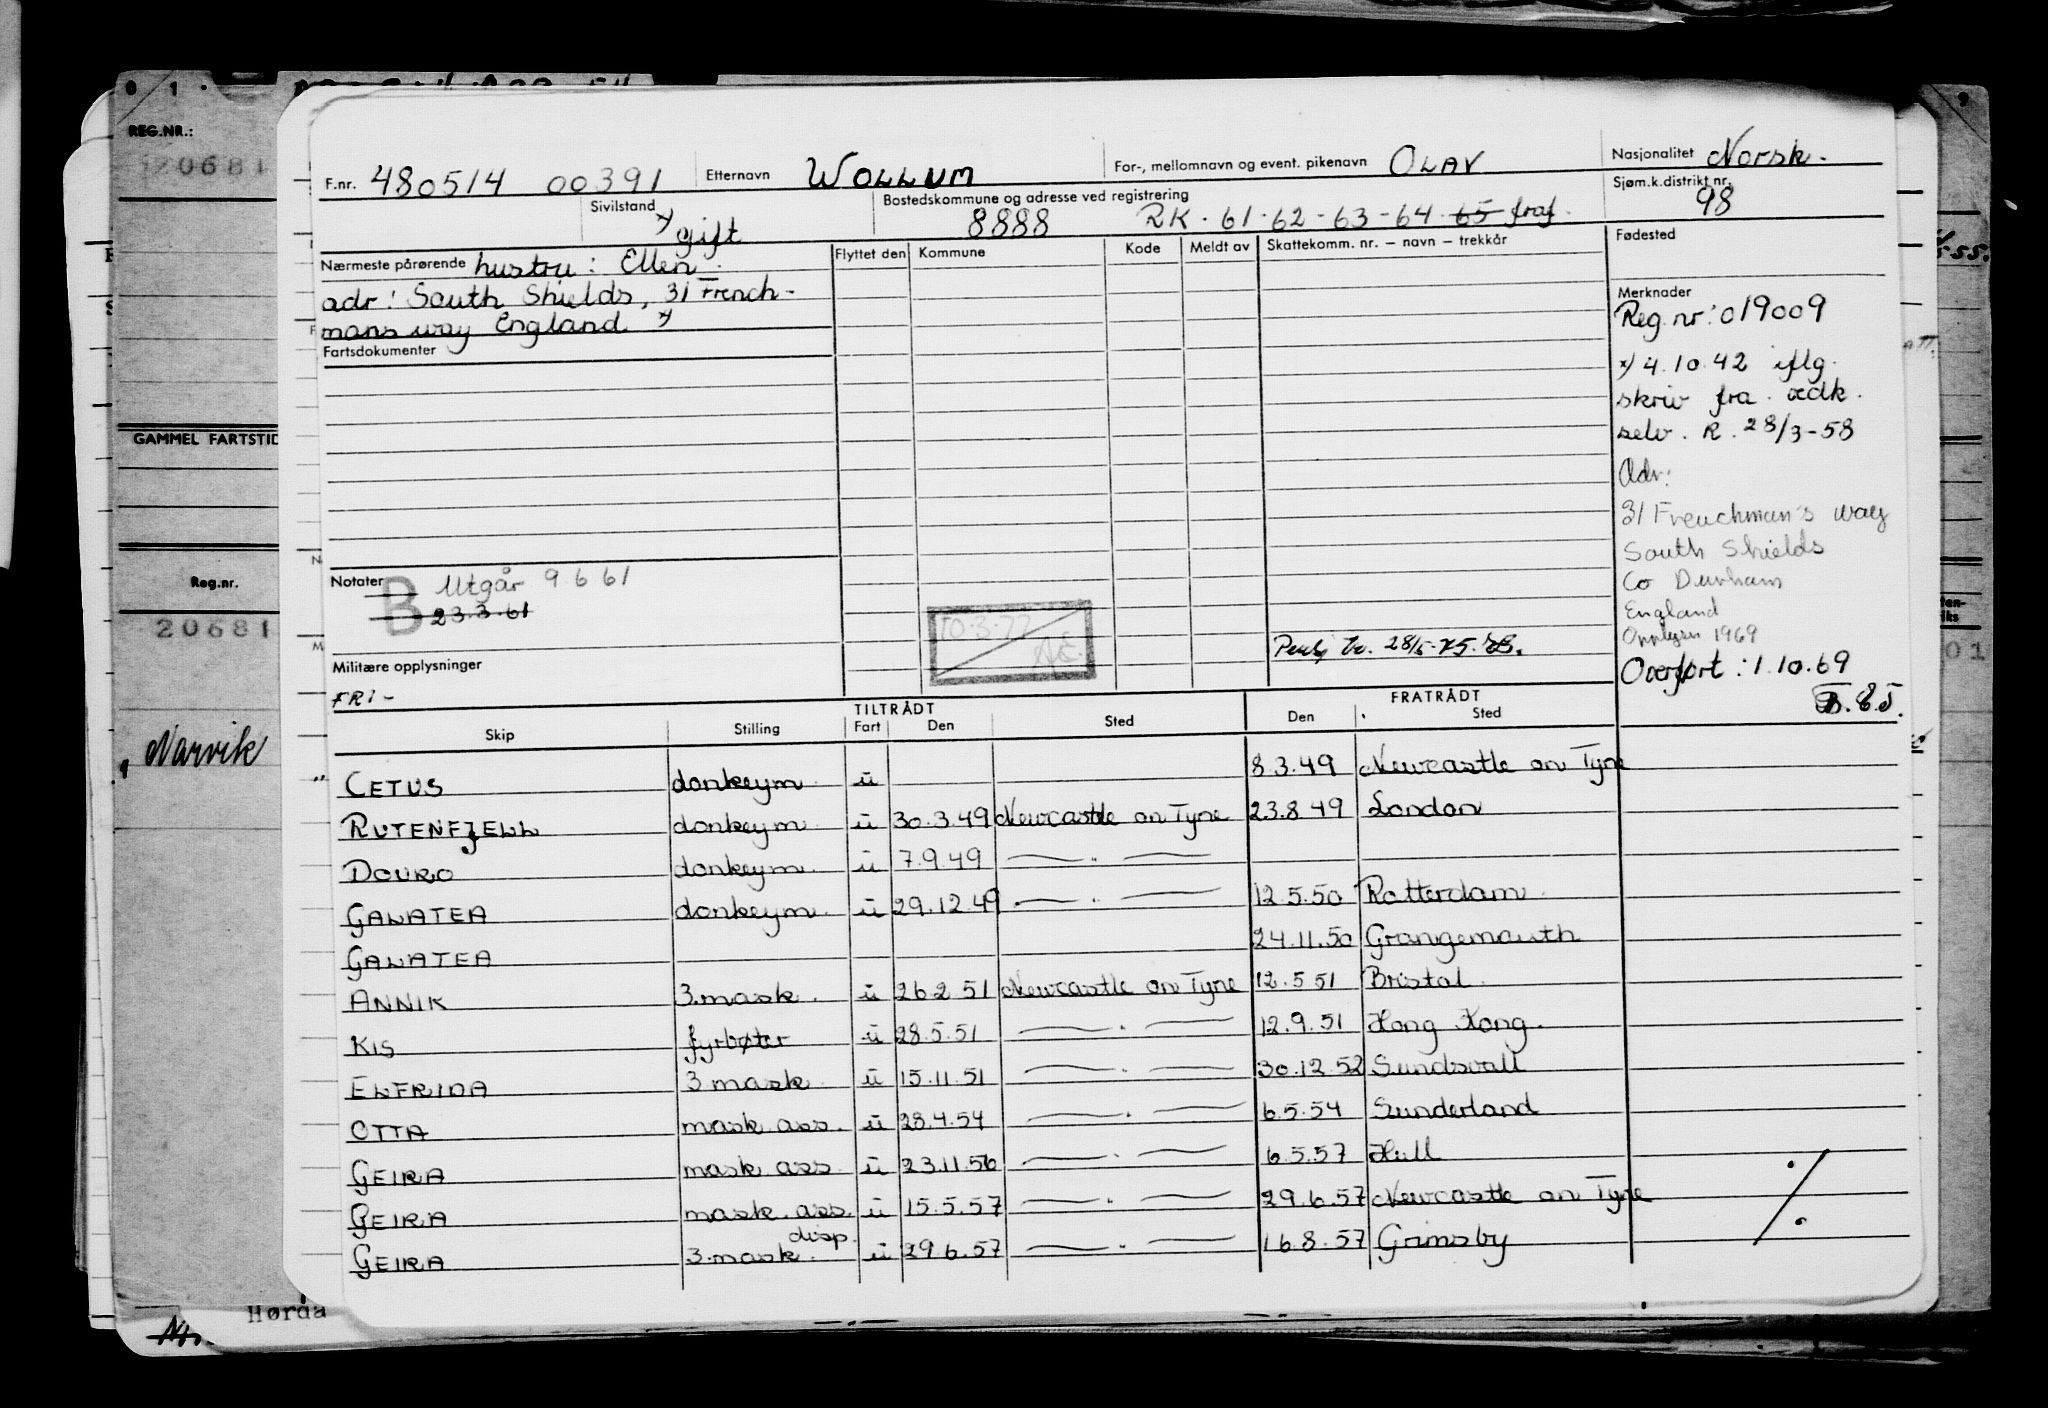 REG.NR.:
20681
GAMMEL FARTSTID
Reg.nr.
20681
Narvik
Hørda
F.nr. 480514 00391 Etternavn WOLLUM For-, mellomnavn og event. pikenavn OLAV Nasjonalitet Norsk.
Sivilstand x) gift Bostedskommune og adresse ved registrering 8888 RK. 61-62-63-64-65 fraf. Sjøm.k.distrikt nr. 98
Nærmeste pårørende hustru: Ellen Flyttet den Kommune Kode Meldt av Skattekomm. nr. – navn – trekkår Fødested
adr: South Shields, 31 French-
mans way England x)
Fartsdokumenter
Merknader
Reg.nr: 019009
x) 4.10.42 iflg.
skriv fra vedk.
selv. R. 28/3-58
Adr:
31 Frenchman's way
South Shields
Co Durham
England
Opplysn 1969
Overført: 1.10.69
B.E.J.
Notater B Utgår 9 6 61
23.3.61
10.3.77
28/5-75.
Militære opplysninger
FRI-
TILTRÅDT FRATRÅDT
Skip Stilling Fart Den Sted Den Sted
CETUS donkeym. u 8.3.49 Newcastle on Tyne
RUTENFJELL donkeym u 30.3.49 Newcastle on Tyne 23.8.49 London
DOURO donkeym. u 7.9.49 — " —
GALATEA donkeym. u 29.12.49 — " — 12.5.50 Rotterdam.
GALATEA 24.11.50 Grangemouth
ANNIK 3.mask. u 26.2.51 Newcastle on Tyne 12.5.51 Bristol
KIS fyrbøter u 28.5.51 — " — 12.9.51 Hong Kong.
ELFRIDA 3 mask u 15.11.51 — " — 30.12.52 Sundsvall
OTTA mask.ass. u 28.4.54 — " — 6.5.54 Sunderland
GEIRA mask.ass u 23.11.56 — " — 6.5.57 Hull
GEIRA mask.ass. u 15.5.57 — " — 29.6.57 Newcastle on Tyne
GEIRA 3.mask. disp. u 29.6.57 — " — 16.8.57 Grimsby